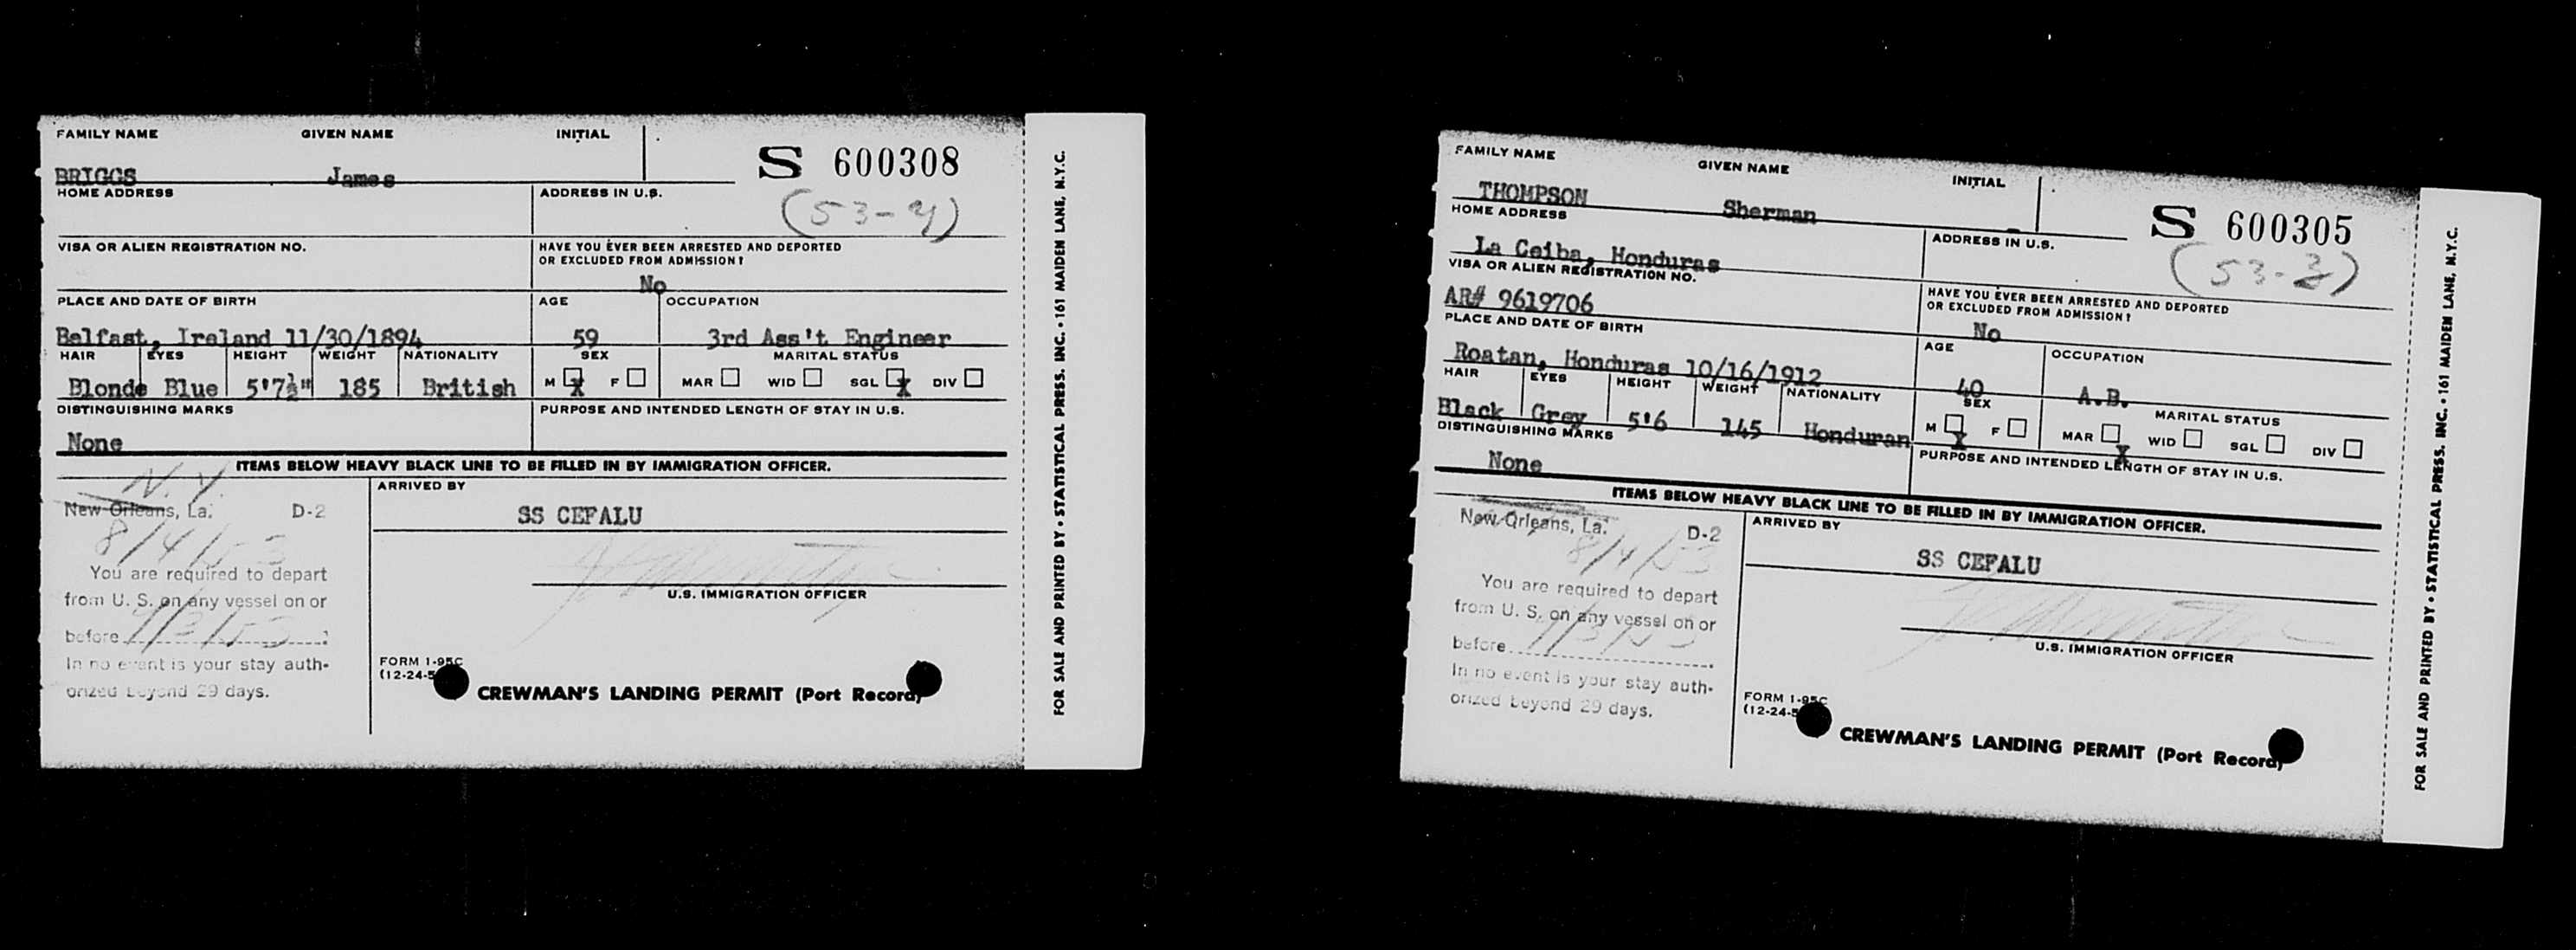 FAMILY NAME GIVEN NAME INITIAL
S 600308
BRIGGS James
(53-4)
HOME ADDRESS ADDRESS IN U.S.
VISA OR ALIEN REGISTRATION NO. HAVE YOU EVER BEEN ARRESTED AND DEPORTED
OR EXCLUDED FROM ADMISSION?
No
PLACE AND DATE OF BIRTH AGE OCCUPATION
Belfast, Ireland 11/30/1894 59 3rd Ass't Engineer
HAIR EYES HEIGHT WEIGHT NATIONALITY SEX MARITAL STATUS
Blonde Blue 5'7½" 185 British M X F MAR WID SGL X DIV
DISTINGUISHING MARKS PURPOSE AND INTENDED LENGTH OF STAY IN U.S.
None
ITEMS BELOW HEAVY BLACK LINE TO BE FILLED IN BY IMMIGRATION OFFICER.
N.Y.
New Orleans, La. D-2
8/4/53
You are required to depart
from U. S. on any vessel on or
before
In no event is your stay auth-
orized beyond 29 days.
ARRIVED BY
SS CEFALU
U.S. IMMIGRATION OFFICER
FORM I-95C
(12-24-5
CREWMAN'S LANDING PERMIT (Port Record)
FOR SALE AND PRINTED BY • STATISTICAL PRESS. INC. • 161 MAIDEN LANE, N.Y.C.
FAMILY NAME GIVEN NAME INITIAL
S 600305
THOMPSON Sherman -
(53-3)
HOME ADDRESS ADDRESS IN U.S.
La Ceiba, Honduras
VISA OR ALIEN REGISTRATION NO. HAVE YOU EVER BEEN ARRESTED AND DEPORTED
OR EXCLUDED FROM ADMISSION?
AR# 9619706 No
PLACE AND DATE OF BIRTH AGE OCCUPATION
Roatan, Honduras 10/16/1912 40 A.B.
HAIR EYES HEIGHT WEIGHT NATIONALITY SEX MARITAL STATUS
Black Grey 5'6 145 Honduran M X F MAR X WID SGL DIV
DISTINGUISHING MARKS PURPOSE AND INTENDED LENGTH OF STAY IN U.S.
None
ITEMS BELOW HEAVY BLACK LINE TO BE FILLED IN BY IMMIGRATION OFFICER.
New Orleans, La. D-2
8/4/53
You are required to depart
from U. S. on any vessel on or
before
In no event is your stay auth-
orized beyond 29 days.
ARRIVED BY
SS CEFALU
U.S. IMMIGRATION OFFICER
FORM I-95C
(12-24-5
CREWMAN'S LANDING PERMIT (Port Record)
FOR SALE AND PRINTED BY • STATISTICAL PRESS. INC. • 161 MAIDEN LANE, N.Y.C.